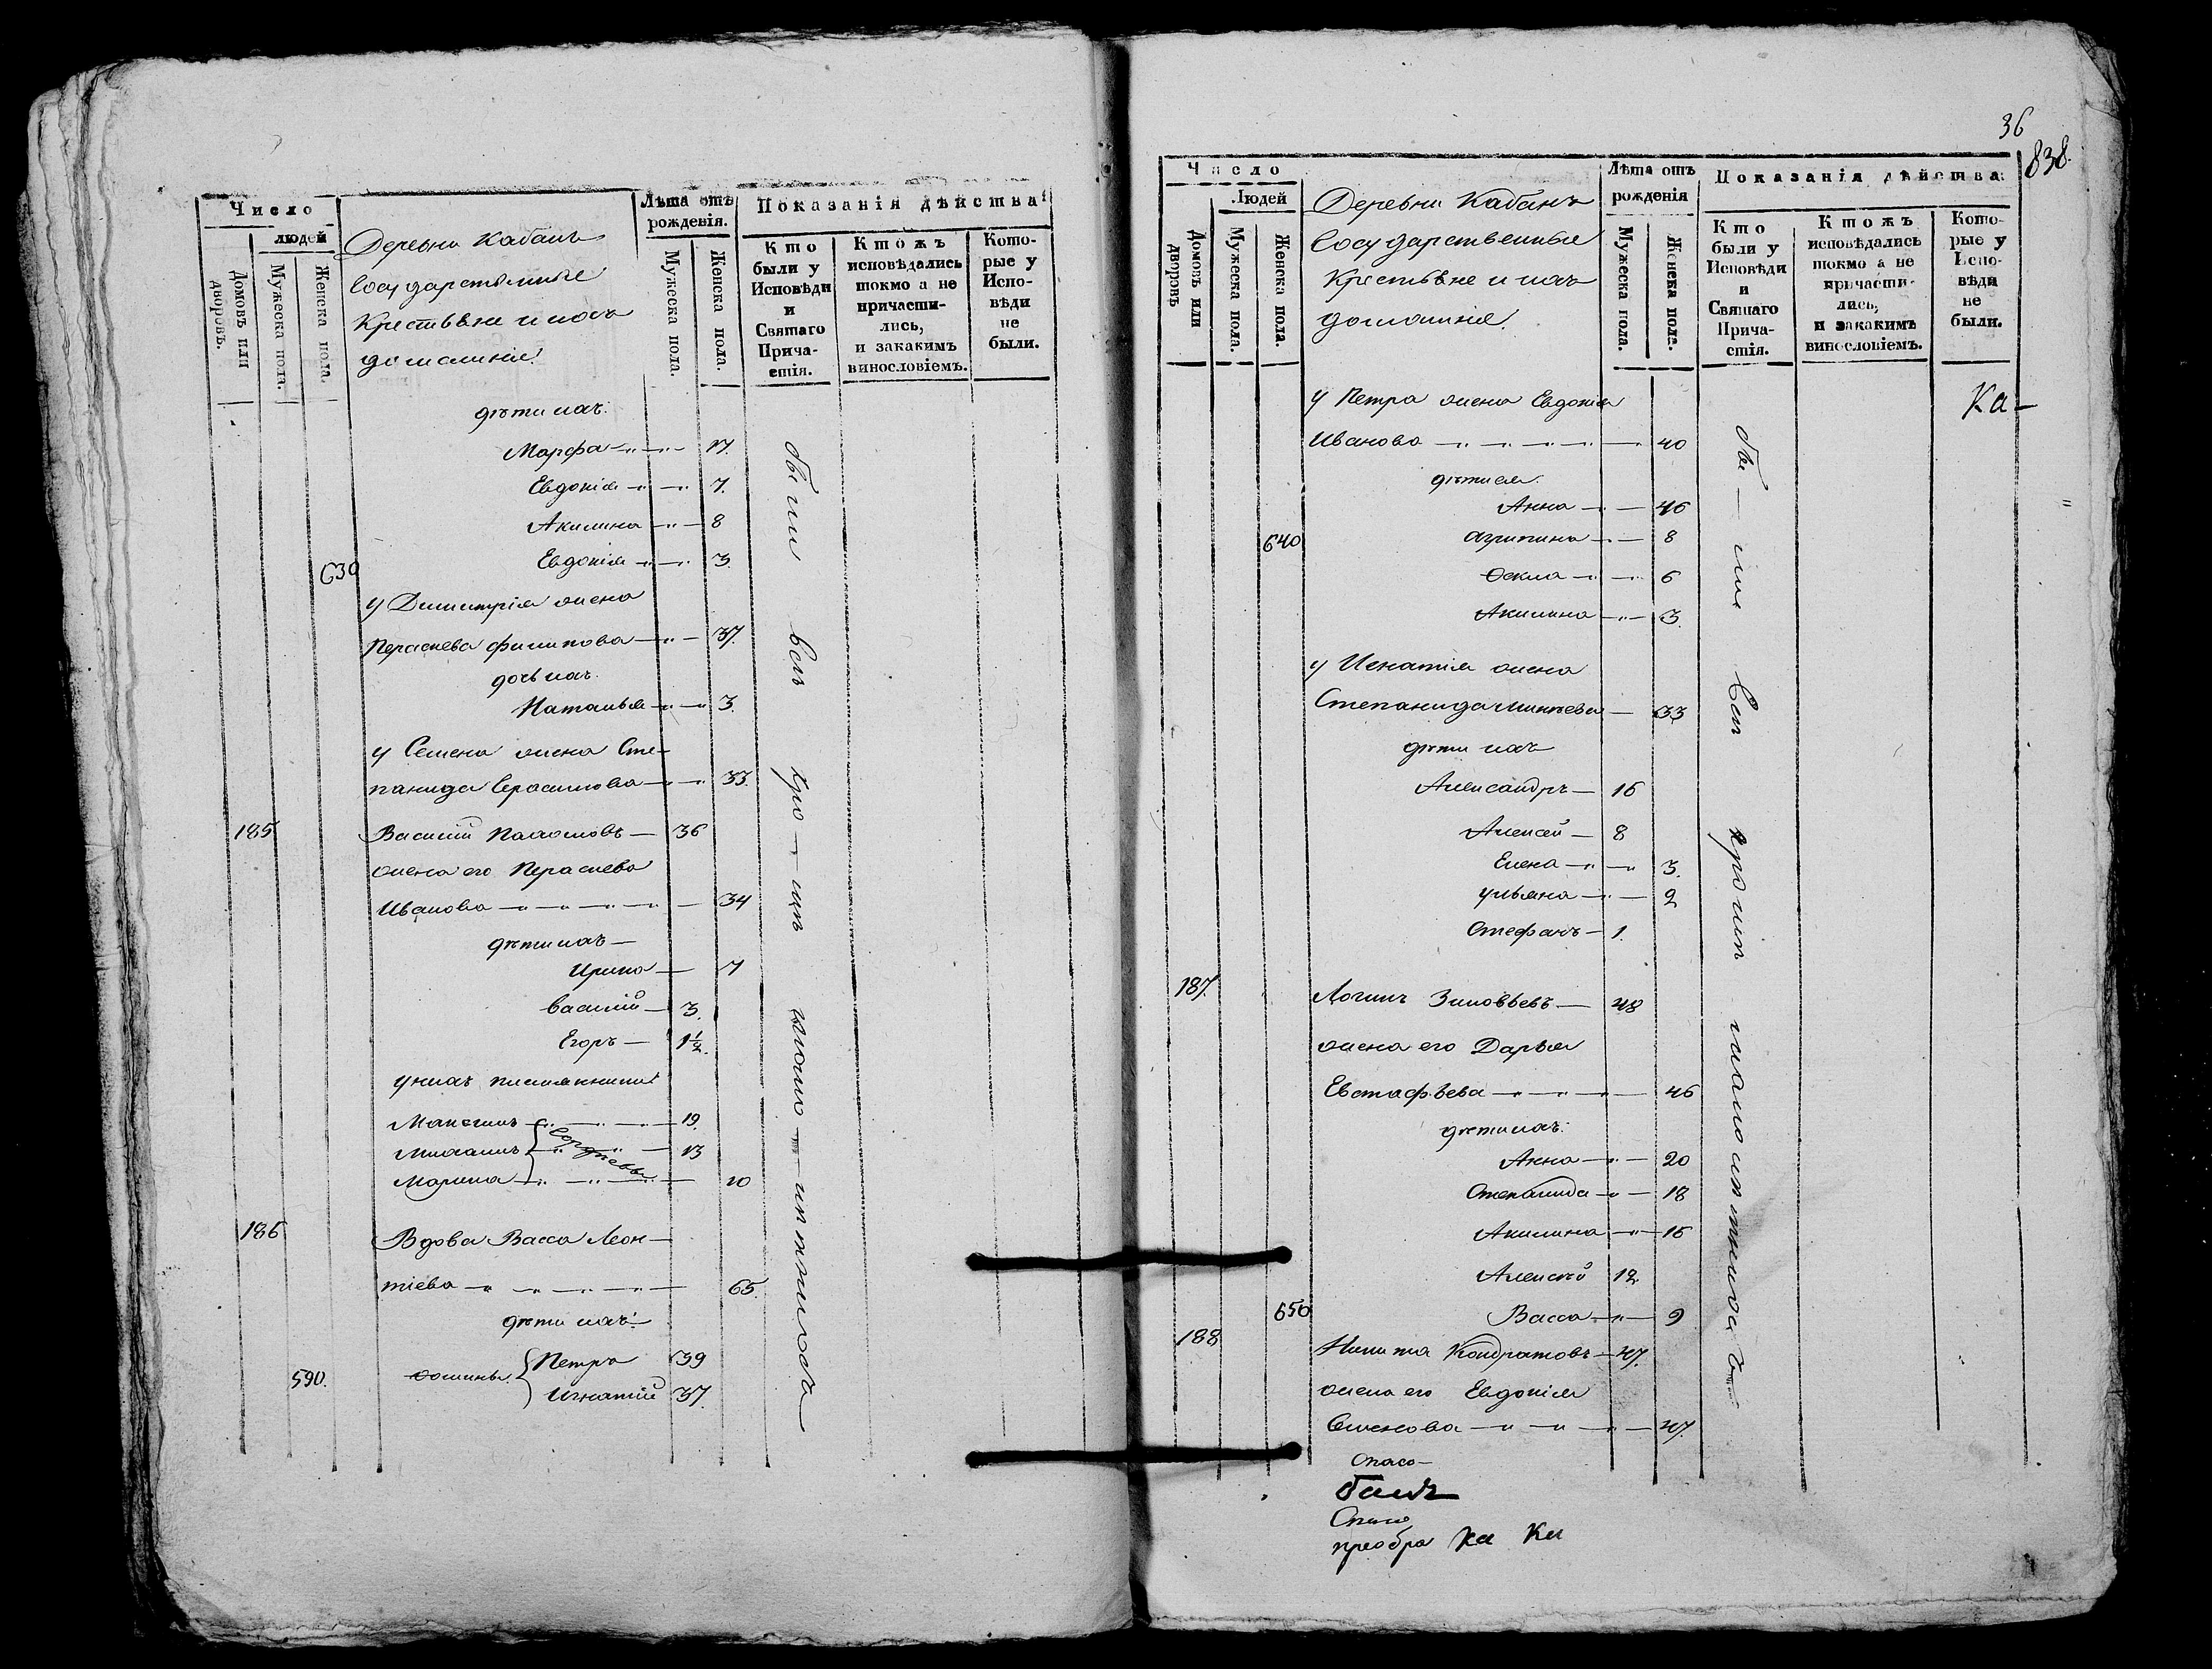 Число
людей
Домовъ или дворовъ.
Мужеска пола.
Женска пола.
Деревни Кабанъ
Государственные
Крестьяне и ихъ
домашніе.
Лѣта отъ рожденія.
Мужеска пола.
Женска пола.
Показанія дѣйства
Кто были у Исповѣди и Святаго Причастія.
Ктожъ исповѣдались токмо а не причастились, и закакимъ винословіемъ.
Которые у Исповѣди не были.
дѣти ихъ:
Марфа 17.
Евдокія 7.
Акилина 8
630 Евдокія 3.
у Димитрія жена
Параскева Филипова 37.
дочь ихъ
Наталья 3.
у Семена жена Сте-
панида Герасимова 33.
185 Василій 36
жена его Параскева
Иванова 34
дѣти ихъ
Ирина 7
Василій 3.
Егоръ 1½.
у нихъ племянники
Максимъ 19.
Михаилъ 13
Марина 10
186 Вдова Васса Леон-
тіева 65.
дѣти ихъ:
590. Фомины Петръ 39
Игнатій 37.
были вси кро-мѣ мало-лѣтнихъ
36
838.
Число
Людей
Домовъ или дворовъ
Мужеска пола.
Женска пола.
Деревни Кабанъ
Государственные
Крестьяне и ихъ
домашніе.
Лѣта отъ рожденія
Мужеска пола.
Женска пола.
Показанія дѣйства
Кто были у Исповѣди и Святаго Причастія.
Ктожъ исповѣдались токмо а не причастились, и закакимъ винословіемъ.
Которые у Исповѣди не были.
Ка-
у Петра жена Евдокія
Иванова 40
дѣти ея
Анна
640 Агрипина 8
Фекла 6
Акилина 3.
у Игнатія жена
Степанида 33
дѣти ихъ
Александръ 16
Алексей 8
Елена 3.
Ульяна 2
Стефанъ 1.
187. Логинъ Зиновьевъ 48
жена его Дарья
Евстафьева 46
дѣти ихъ:
Анна 20
Степанида 18
Акилина 16
Алексѣй 12
650 Васса 9
188 Никита Кондратовъ 47.
жена его Евдокія
Семенова 47.
бы-ли вси кромѣ малолѣтнихъ
Спасо-
банъ
Спасо
преобра ка Ки